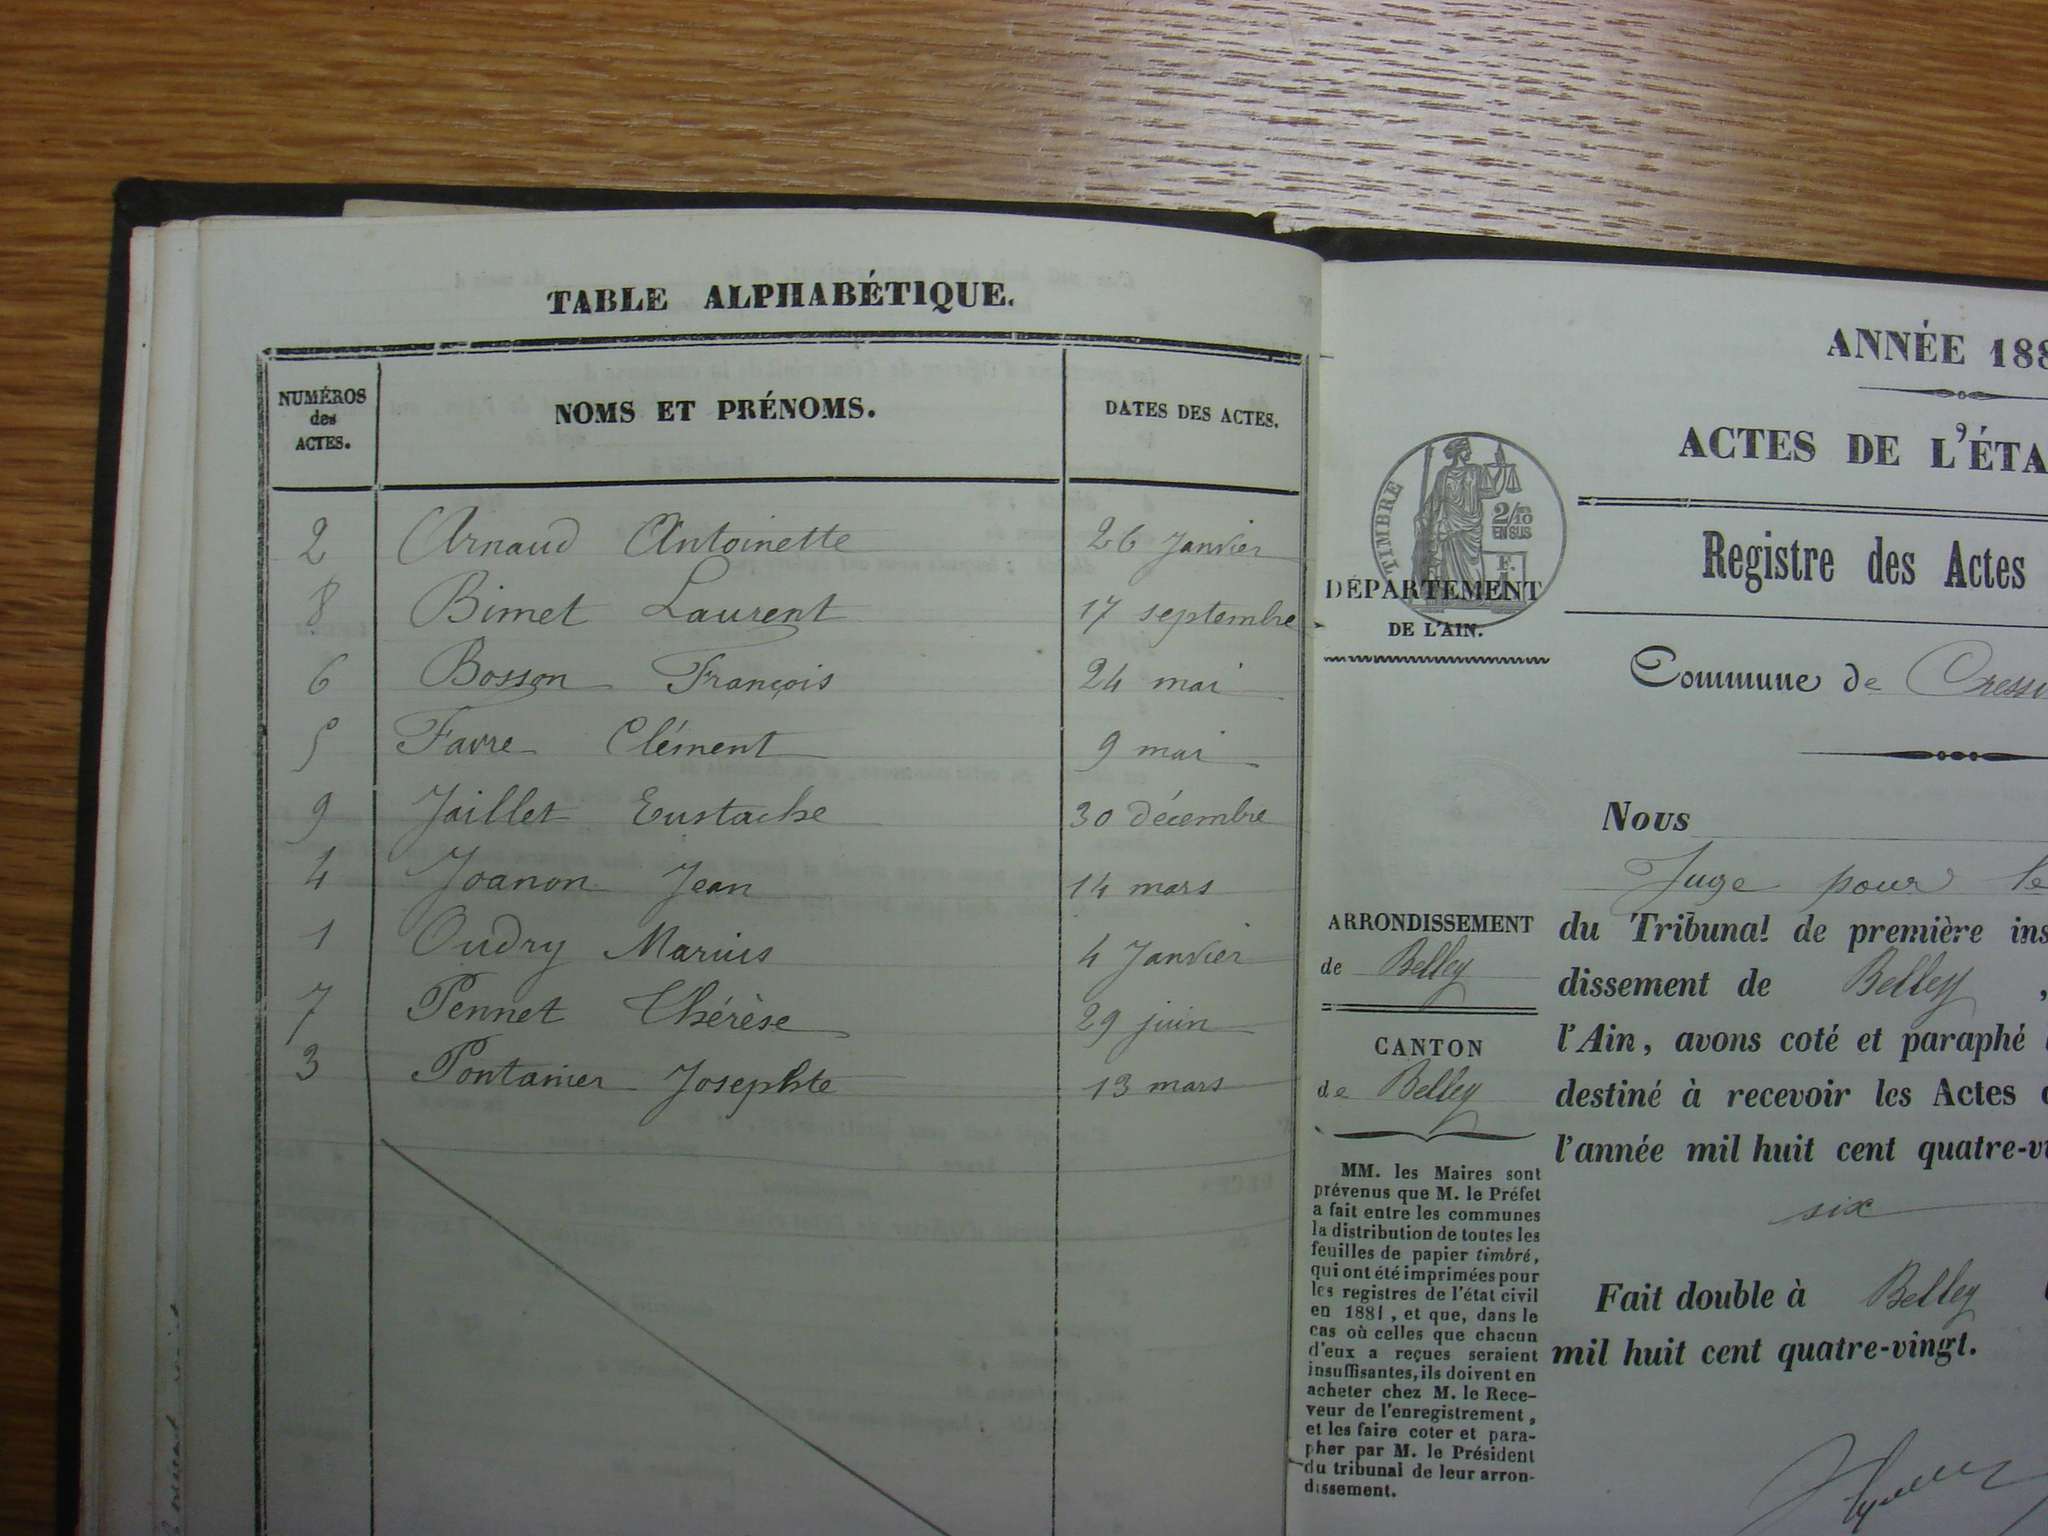 TABLE ALPHABÉTIQUE.
NUMÉROS des ACTES.
NOMS ET PRÉNOMS.
DATES DES ACTES.
2 Arnaud Antoinette 26 Janvier
8 Bimet Laurent 17 septembre
6 Bosson François 24 mai
5 Favre Clément 9 mai
9 Jaillet Eustache 30 décembre
4 Joanon Jean 14 mars
1 Oudry Marius 4 Janvier
7 Pennet Thérèse 29 juin
3 Pontanier Josephte 13 mars
ANNÉE 188
ACTES DE L'ÉTA
TIMBRE
2/10
EN SUS
DÉPARTEMENT
DE L'AIN.
Registre des Actes
Commune de Cressi
Nous
Juge pour le
ARRONDISSEMENT
de Belley
CANTON
de Belley
MM. les Maires sont
prévenus que M. le Préfet
a fait entre les communes
la distribution de toutes les
feuilles de papier timbré,
qui ont été imprimées pour
les registres de l'état civil
en 1881, et que, dans le
cas où celles que chacun
d'eux a reçues seraient
insuffisantes, ils doivent en
acheter chez M. le Rece-
veur de l'enregistrement,
et les faire coter et para-
pher par M. le Président
du tribunal de leur arron-
dissement.
du Tribunal de première ins
dissement de Belley,
l'Ain, avons coté et paraphé
destiné à recevoir les Actes
l'année mil huit cent quatre-vi
six
Fait double à Belley
mil huit cent quatre-vingt.